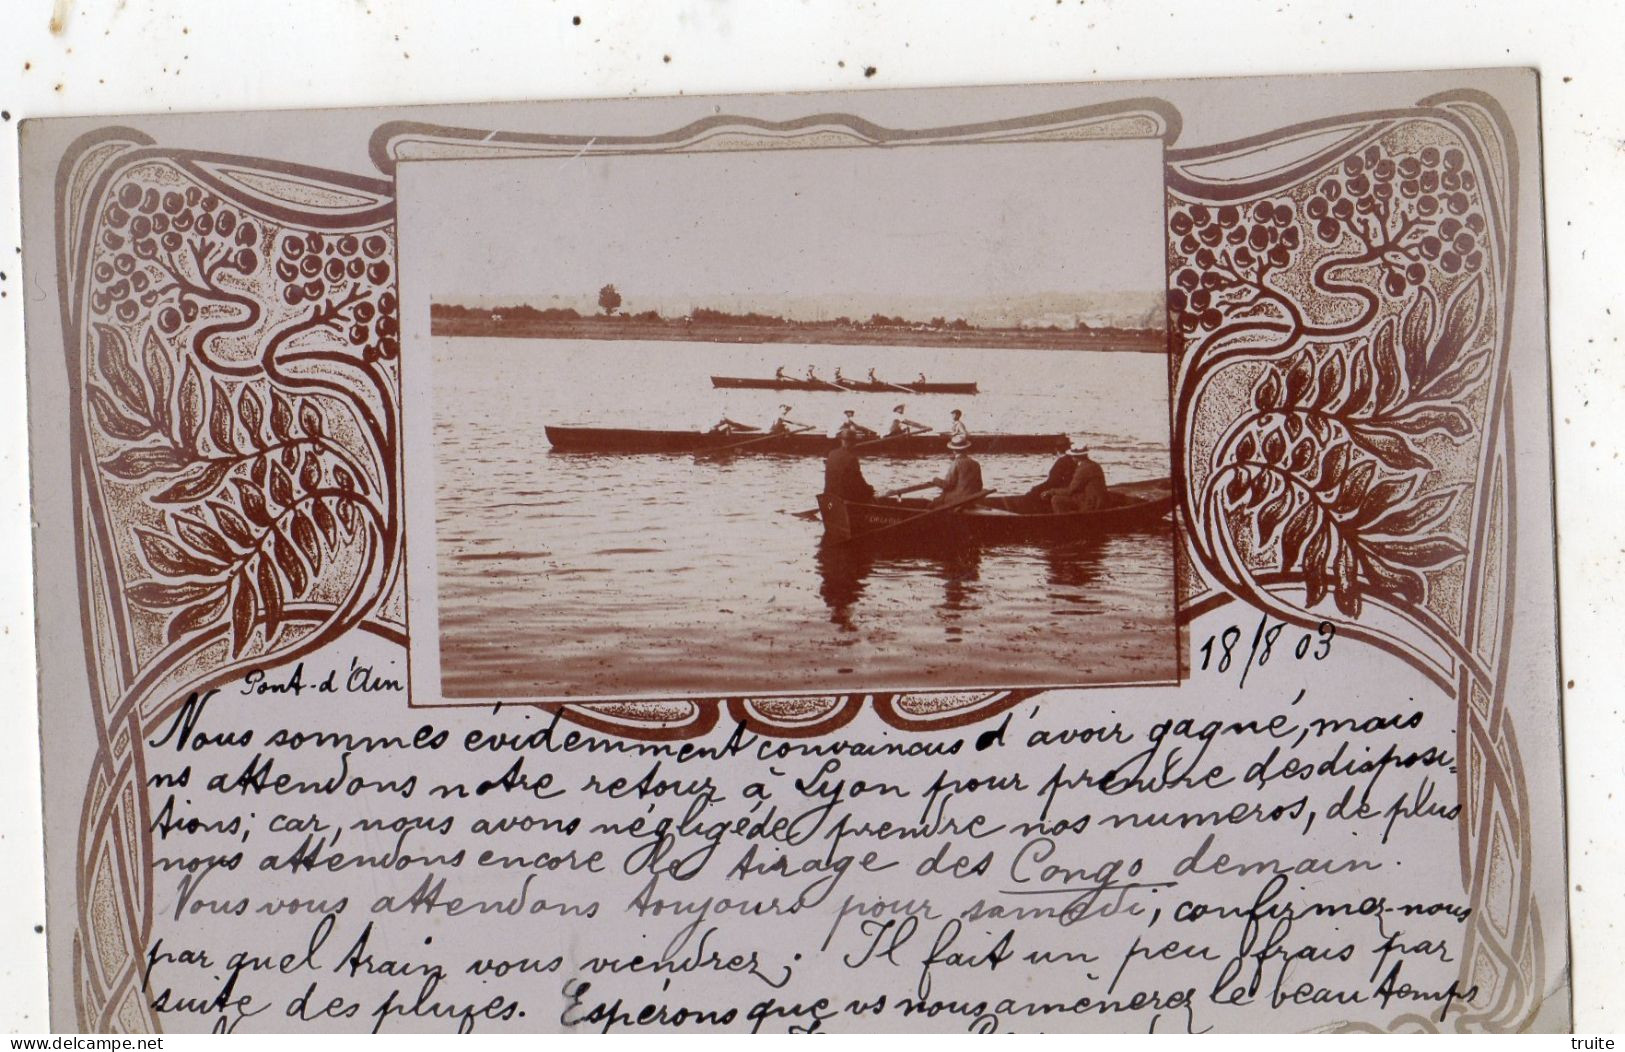 Pont-d'Ain
18/8 03
Nous sommes évidemment convaincus d'avoir gagné, mais
ns attendons notre retour à Lyon pour prendre des disposi-
tions; car, nous avons négligé de prendre nos numeros, de plus
nous attendons encore le tirage des Congo demain.
Nous vous attendons toujours pour samedi, confirmez-nous
par quel train vous viendrez; Il fait un peu frais par
suite des pluies. Espérons que vs nous amènerez le beau temps
delcampe.net
truite